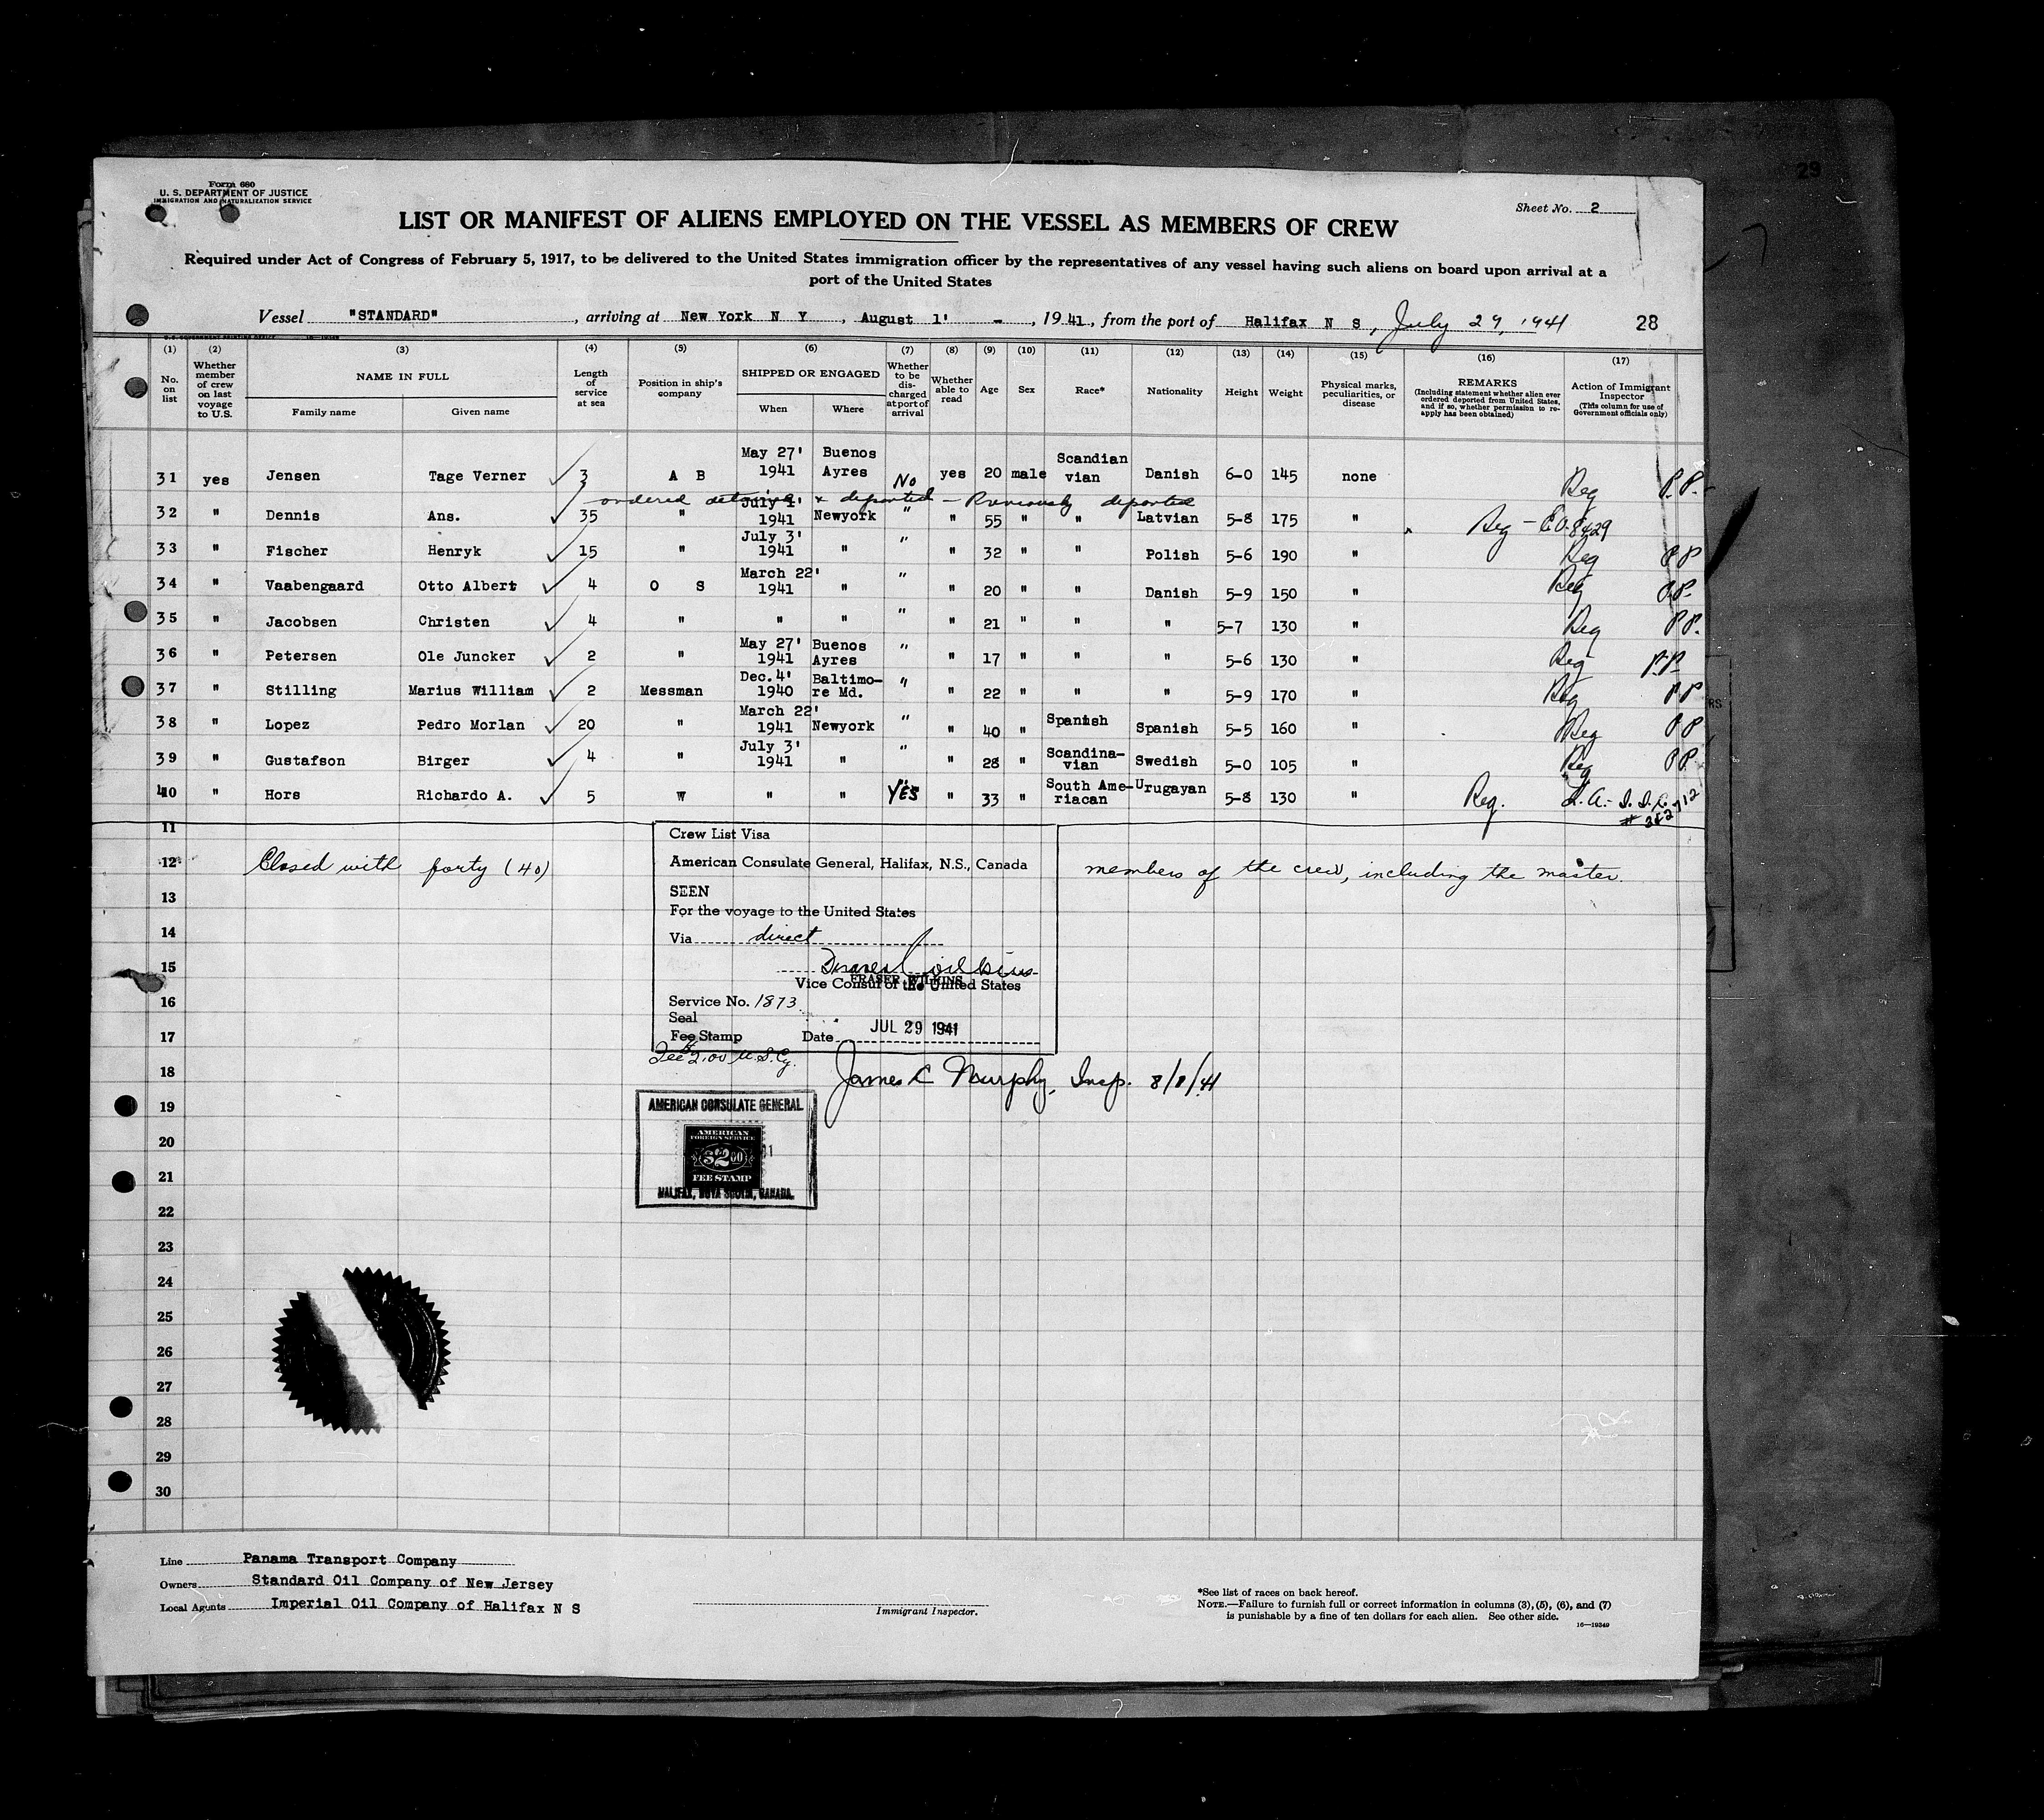 29
Form 680
U. S. DEPARTMENT OF JUSTICE
IMMIGRATION AND NATURALIZATION SERVICE
Sheet No. 2
LIST OR MANIFEST OF ALIENS EMPLOYED ON THE VESSEL AS MEMBERS OF CREW
Required under Act of Congress of February 5, 1917, to be delivered to the United States immigration officer by the representatives of any vessel having such aliens on board upon arrival at a
port of the United States
Vessel "STANDARD", arriving at New York N Y, August 1' -, 1941, from the port of Halifax N S, July 29, 1941 28
(1) (2) (3) (4) (5) (6) (7) (8) (9) (10) (11) (12) (13) (14) (15) (16) (17)
No. on list Whether member of crew on last voyage to U.S. NAME IN FULL Family name Given name Length of service at sea Position in ship's company SHIPPED OR ENGAGED When Where Whether to be discharged at port of arrival Whether able to read Age Sex Race* Nationality Height Weight Physical marks, peculiarities, or disease REMARKS (Including statement whether alien ever ordered deported from United States, and if so, whether permission to reapply has been obtained) Action of Immigrant Inspector (This column for use of Government officials only)
31 yes Jensen Tage Verner 3 A B May 27' 1941 Buenos Ayres No yes 20 male Scandian vian Danish 6-0 145 none Reg P.P.
ordered detained & deported - Previously deported
32 " Dennis Ans. 35 " July 1' 1941 Newyork " " 55 " " Latvian 5-8 175 " Reg - E.O. 8429
33 " Fischer Henryk 15 " July 3' 1941 " " " 32 " " Polish 5-6 190 " Reg P P
34 " Vaabengaard Otto Albert 4 O S March 22' 1941 " " " 20 " " Danish 5-9 150 " Reg P.P.
35 " Jacobsen Christen 4 " " " " " 21 " " " 5-7 130 " Reg P P.
36 " Petersen Ole Juncker 2 " May 27' 1941 Buenos Ayres " " 17 " " " 5-6 130 " Reg P.P.
37 " Stilling Marius William 2 Messman Dec. 4' 1940 Baltimo-re Md. " " 22 " " " 5-9 170 " Reg P P
38 " Lopez Pedro Morlan 20 " March 22' 1941 Newyork " " 40 " Spanish Spanish 5-5 160 " Reg P P
39 " Gustafson Birger 4 " July 3' 1941 " " " 28 " Scandina-vian Swedish 5-0 105 " Reg P P.
40 " Hors Richardo A. 5 W " " YES " 33 " South Ame-riacan Urugayan 5-8 130 " Reg.
11
12 Closed with forty (40) members of the crew, including the master.
13
14
15
16
17
18
19
20
21
22
23
24
25
26
27
28
29
30
Crew List Visa
American Consulate General, Halifax, N.S., Canada
SEEN
For the voyage to the United States
Via direct
FRASER WILKINS
Vice Consul of the United States
Service No. 1873
Seal
Fee Stamp Date JUL 29 1941
Fee $2.00 U.S.Cy.
James C Murphy, Insp. 8/1/41
AMERICAN CONSULATE GENERAL
AMERICAN
FOREIGN SERVICE
$2.00
FEE STAMP
HALIFAX, NOVA SCOTIA, CANADA.
Line Panama Transport Company
Owners Standard Oil Company of New Jersey
Local Agents Imperial Oil Company of Halifax N S
Immigrant Inspector.
*See list of races on back hereof.
NOTE.—Failure to furnish full or correct information in columns (3), (5), (6), and (7)
is punishable by a fine of ten dollars for each alien. See other side.
16—19349